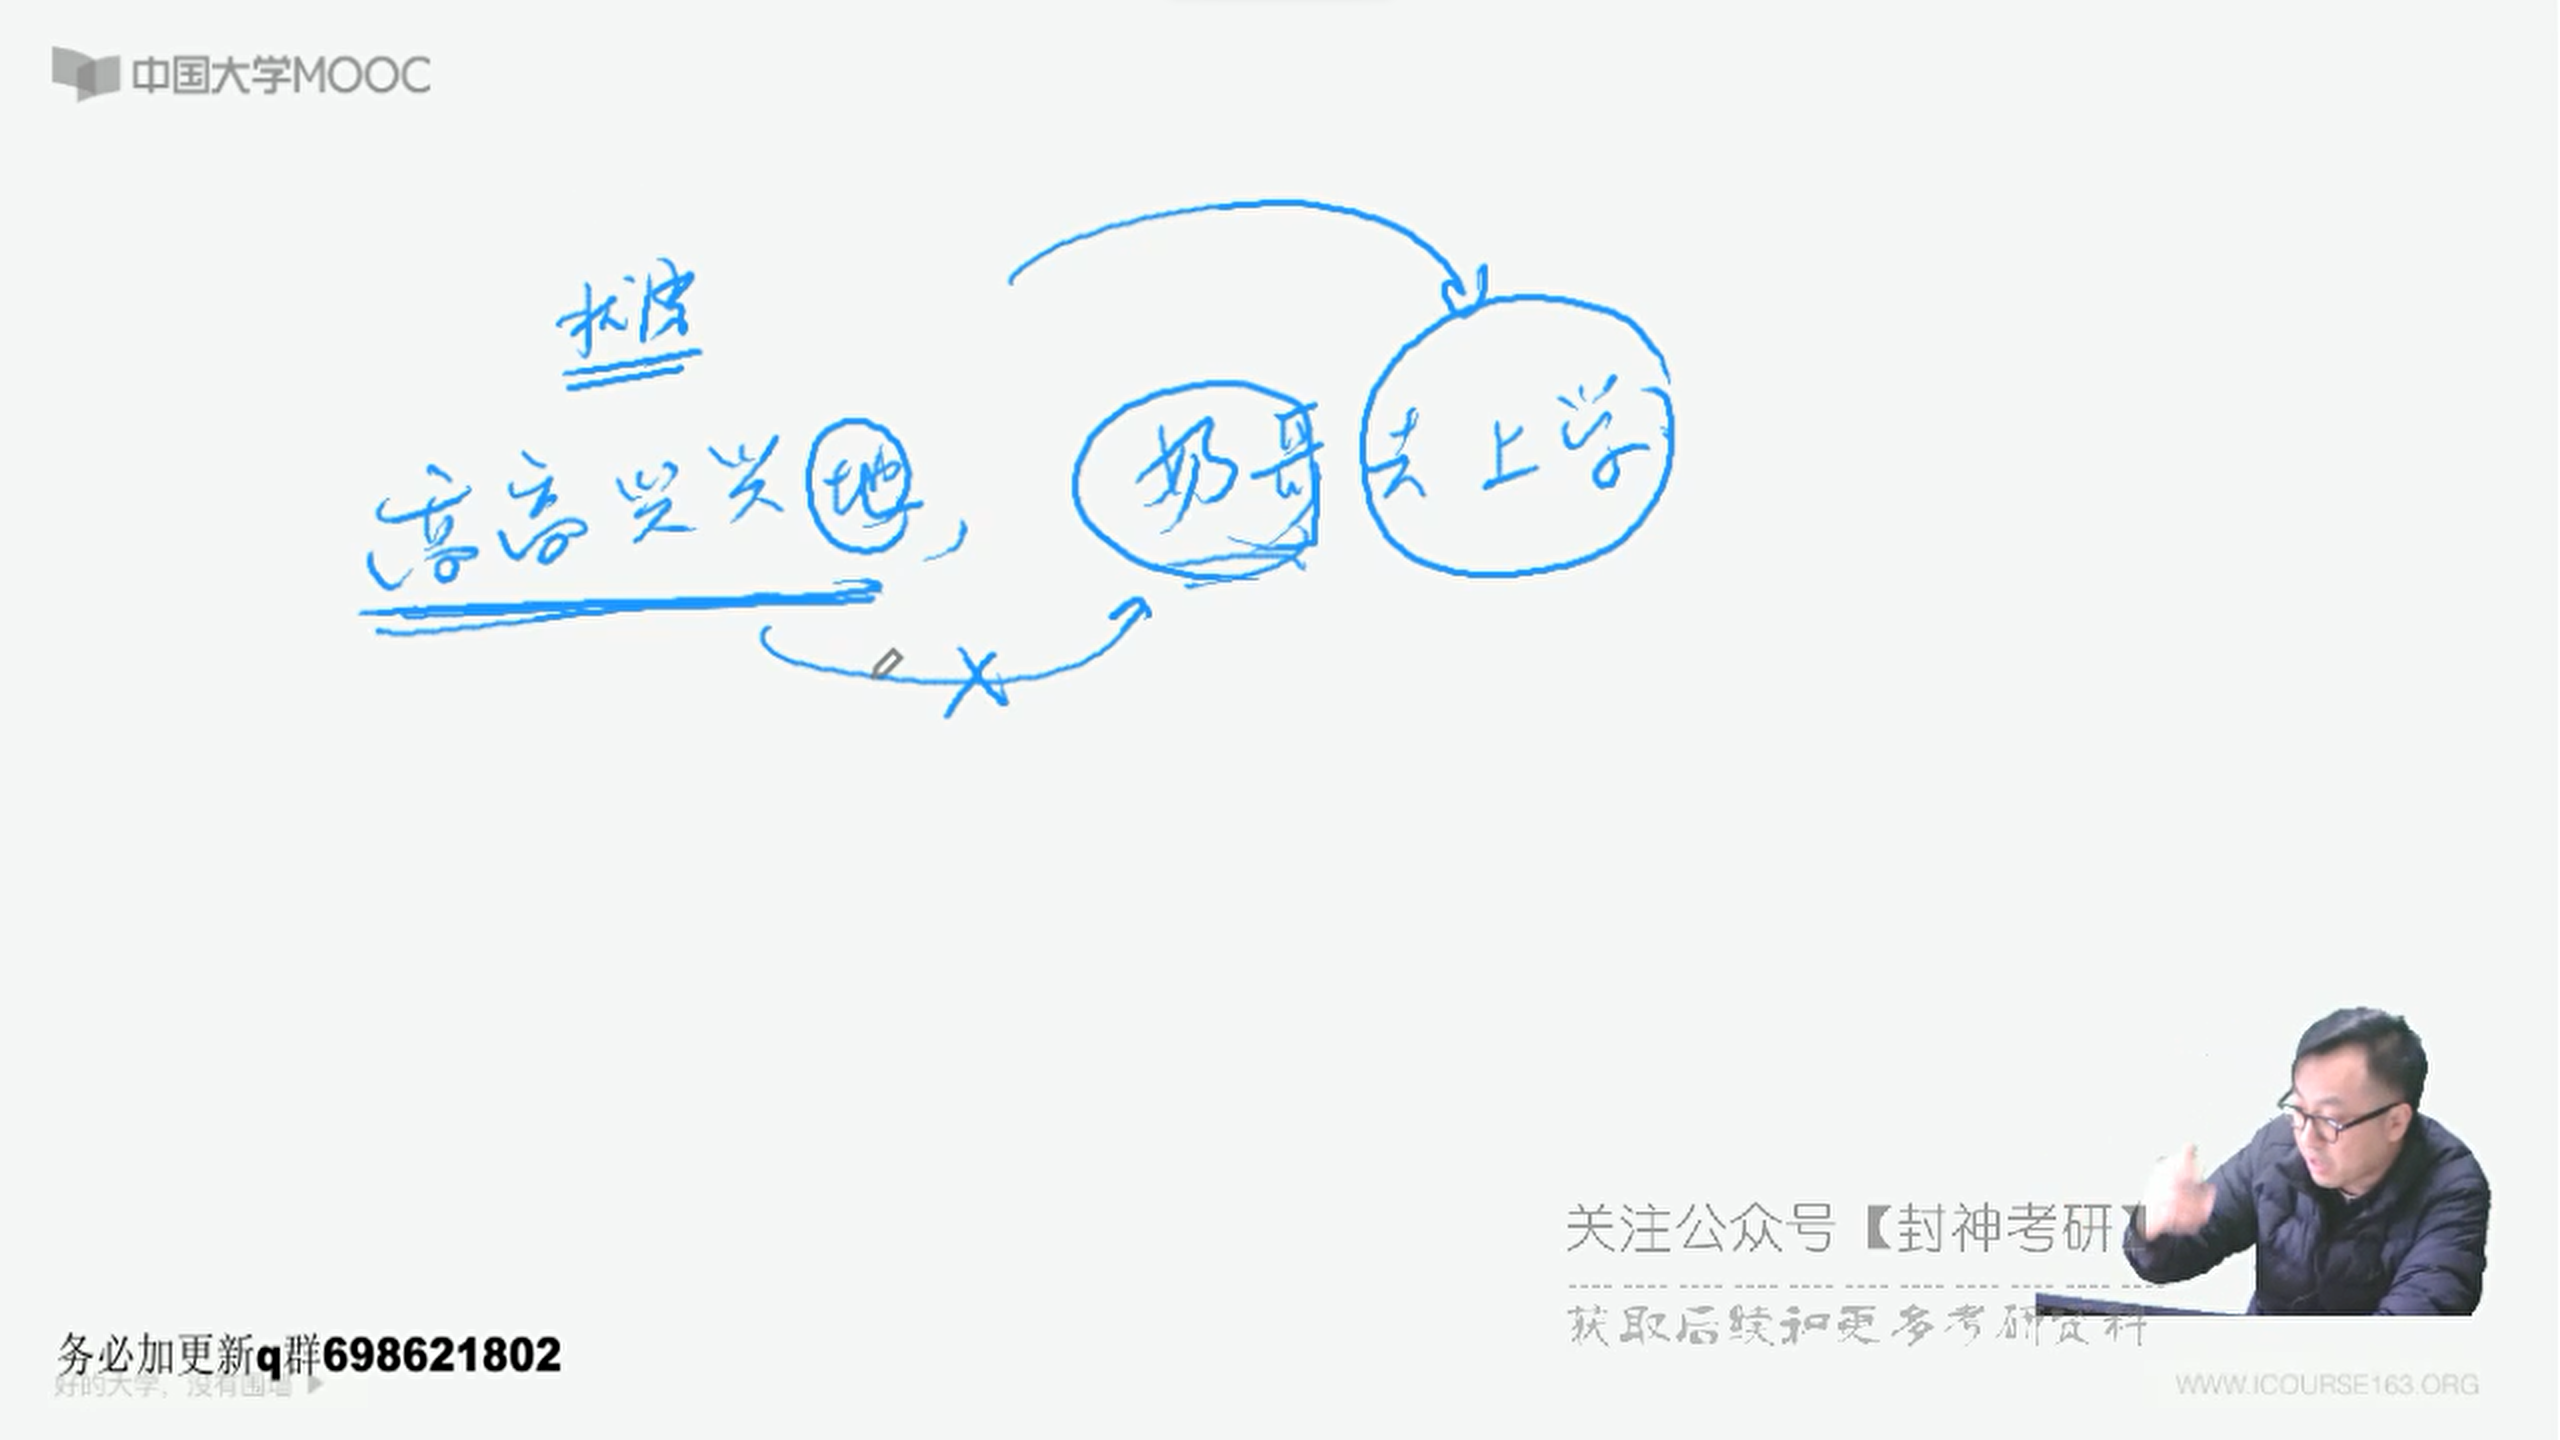 中国大学MOOC
状语
高高兴兴地,奶哥去上学
关注公众号【封神考研】
获取后续和更多考研资料
务必加更新q群698621802
好的大学，没有围墙
WWW.ICOURSE163.ORG